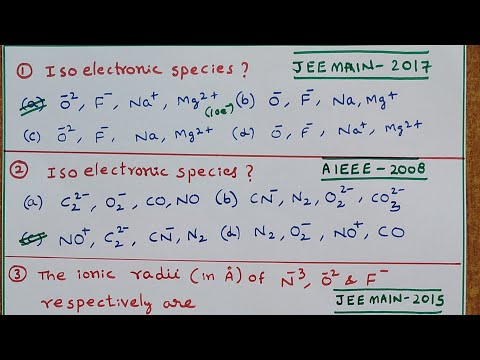 ① Isoelectronic species? JEE MAIN - 2017
(a) O⁻², F⁻, Na⁺, Mg²⁺ (10e⁻) (b) O⁻, F⁻, Na, Mg⁺
(c) O⁻², F⁻, Na, Mg²⁺ (d) O⁻, F⁻, Na⁺, Mg²⁺
② Isoelectronic species? AIEEE - 2008
(a) C₂²⁻, O₂⁻, CO, NO (b) CN⁻, N₂, O₂²⁻, CO₃²⁻
(c) NO⁺, C₂²⁻, CN⁻, N₂ (d) N₂, O₂⁻, NO⁺, CO
③ The ionic radii (in Å) of N⁻³, O⁻² & F⁻
respectively are JEE MAIN - 2015